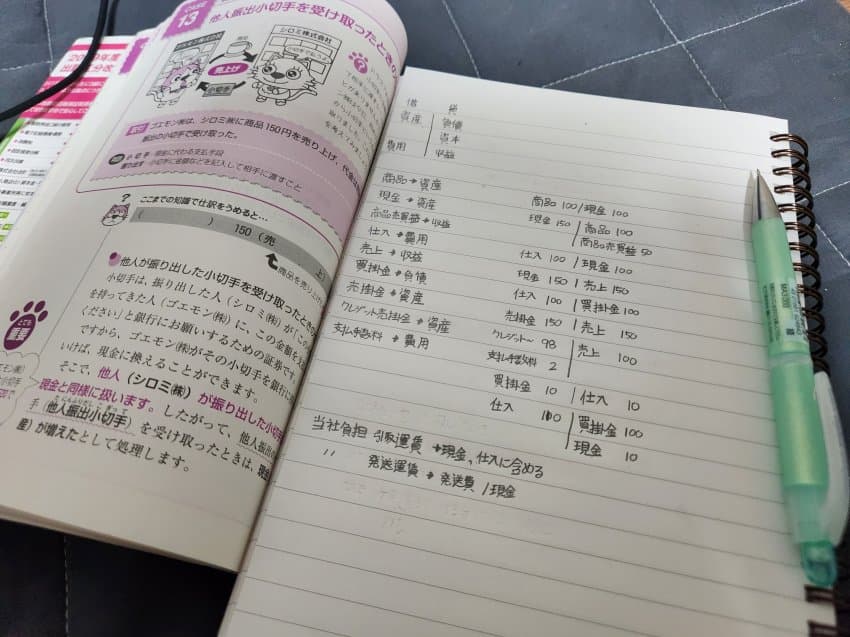 CASE
13
他人振出小切手を受け取ったときの
シロミ株式会社
商品
売上げ
小切手
取引 ゴエモン㈱は、シロミ㈱に商品150円を売り上げ、代金は
振出の小切手で受け取った。
小切手…現金に代わる支払手段
…小切手に金額などを記入して相手に渡すこと
ここまでの知識で仕訳をうめると…
( ) 150 (売 上)
商品を売り上げ
●他人が振り出した小切手を受け取ったときの
小切手は、振り出した人(シロミ㈱)が「この
を持ってきた人(ゴエモン㈱)に、この金額を支
ください」と銀行にお願いするための証券です。
ですから、ゴエモン㈱がその小切手を銀行に
いけば、現金に換えることができます。
そこで、他人(シロミ㈱)が振り出した小切
現金と同様に扱います。したがって、他人振出の
手(他人振出小切手)を受け取ったときは、現金
産)が増えたとして処理します。
とても
重要
借 貸
資産 負債
資本
費用 収益
商品→資産
現金→資産
商品売買益→収益
仕入→費用
売上→収益
買掛金→負債
売掛金→資産
クレジット売掛金→資産
支払手数料→費用
商品 100/現金 100
現金 150 商品 100
商品売買益 50
仕入 100 現金 100
現金 150 売上 150
仕入 100 買掛金 100
売掛金 150 売上 150
クレジット〜 98 売上 100
支払手数料 2
買掛金 10 仕入 10
仕入 110 買掛金 100
現金 10
当社負担 引取運賃→現金、仕入に含める
〃 発送運賃→発送費/現金